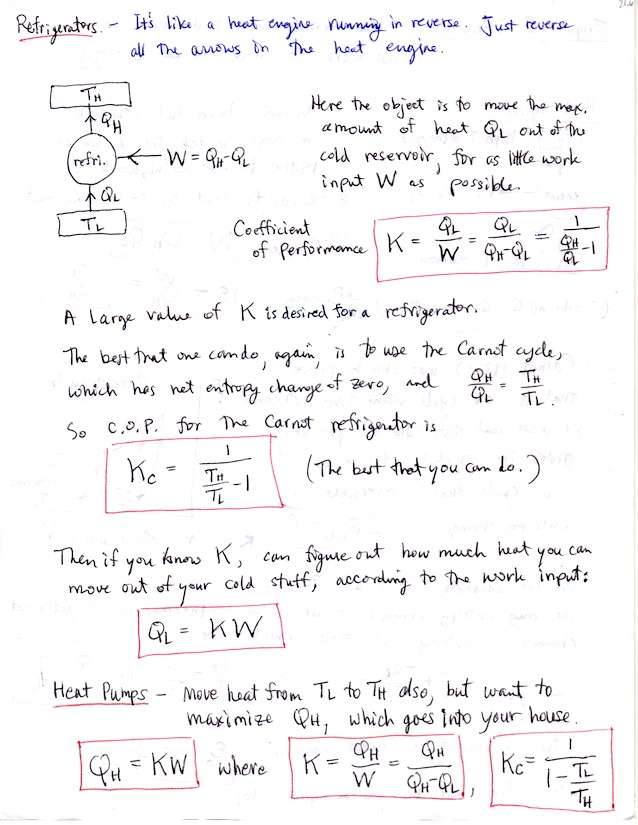 Refrigerators. - It's like a heat engine running in reverse. Just reverse
all the arrows in the heat engine.
TH
QH
refri.
W = QH-QL
QL
TL
Here the object is to move the max.
amount of heat QL out of the
cold reservoir, for as little work
input W as possible.
Coefficient
of Performance
K = QL/W = QL/(QH-QL) = 1/(QH/QL - 1)
A large value of K is desired for a refrigerator.
The best that one can do, again, is to use the Carnot cycle,
which has net entropy change of zero, and QH/QL = TH/TL.
So C.O.P. for the Carnot refrigerator is
Kc = 1/(TH/TL - 1) (The best that you can do.)
Then if you know K, can figure out how much heat you can
move out of your cold stuff, according to the work input:
QL = KW
Heat Pumps - Move heat from TL to TH also, but want to
maximize QH, which goes into your house.
QH = KW where K = QH/W = QH/(QH-QL), Kc = 1/(1 - TL/TH)